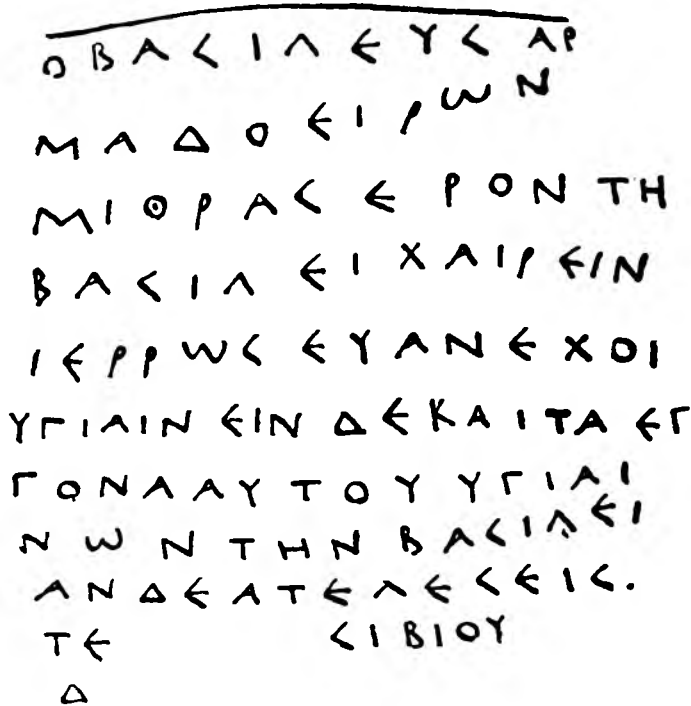 ΟΒΑΣΙΛΕΥΣ ΑΡ
ΜΑΔΟΕΙΡΩΝ
ΜΙΘΡΑΣΕΡΟΝ ΤΗ
ΒΑΣΙΛΕΙ ΧΑΙΡΕΙΝ
ΙΕΡΡΩΣ ΕΥΑΝΕΧΟΙ
ΥΓΙΑΙΝΕΙΝ ΔΕΚΑΙΤΑ ΕΓ
ΓΟΝΑΑΥΤΟΥ ΥΓΙΑΙ
ΝΩΝ ΤΗΝ ΒΑΣΙΛΕΙ
ΑΝΔΕΑΤΕΛΕΣΕΙΣ.
ΤΕ ΣΙΒΙΟΥ
Δ